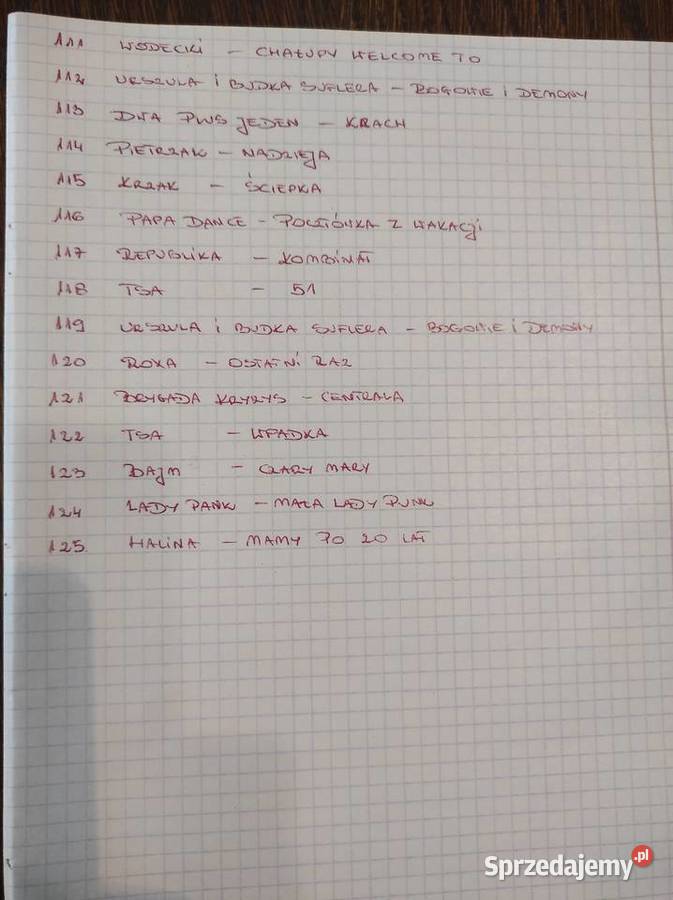 111 WODECKI - CHAŁUPY WELCOME TO
112 URSZULA I BUDKA SUFLERA - BOGOWIE I DEMONY
113 DWA PLUS JEDEN - KRACH
114 PIETRZAK - NADZIEJA
115 KRZAK - ŚCIEPKA
116 PAPA DANCE - POCZTÓWKA Z WAKACJI
117 REPUBLIKA - KOMBINAT
118 TSA - 51
119 URSZULA I BUDKA SUFLERA - BOGOWIE I DEMONY
120 ROXA - OSTATNI RAZ
121 BRYGADA KRYZYS - CENTRALA
122 TSA - WPADKA
123 BAJM - CZARY MARY
124 LADY PANK - MAŁA LADY PUNK
125 HALINA - MAMY PO 20 LAT
Sprzedajemy.pl